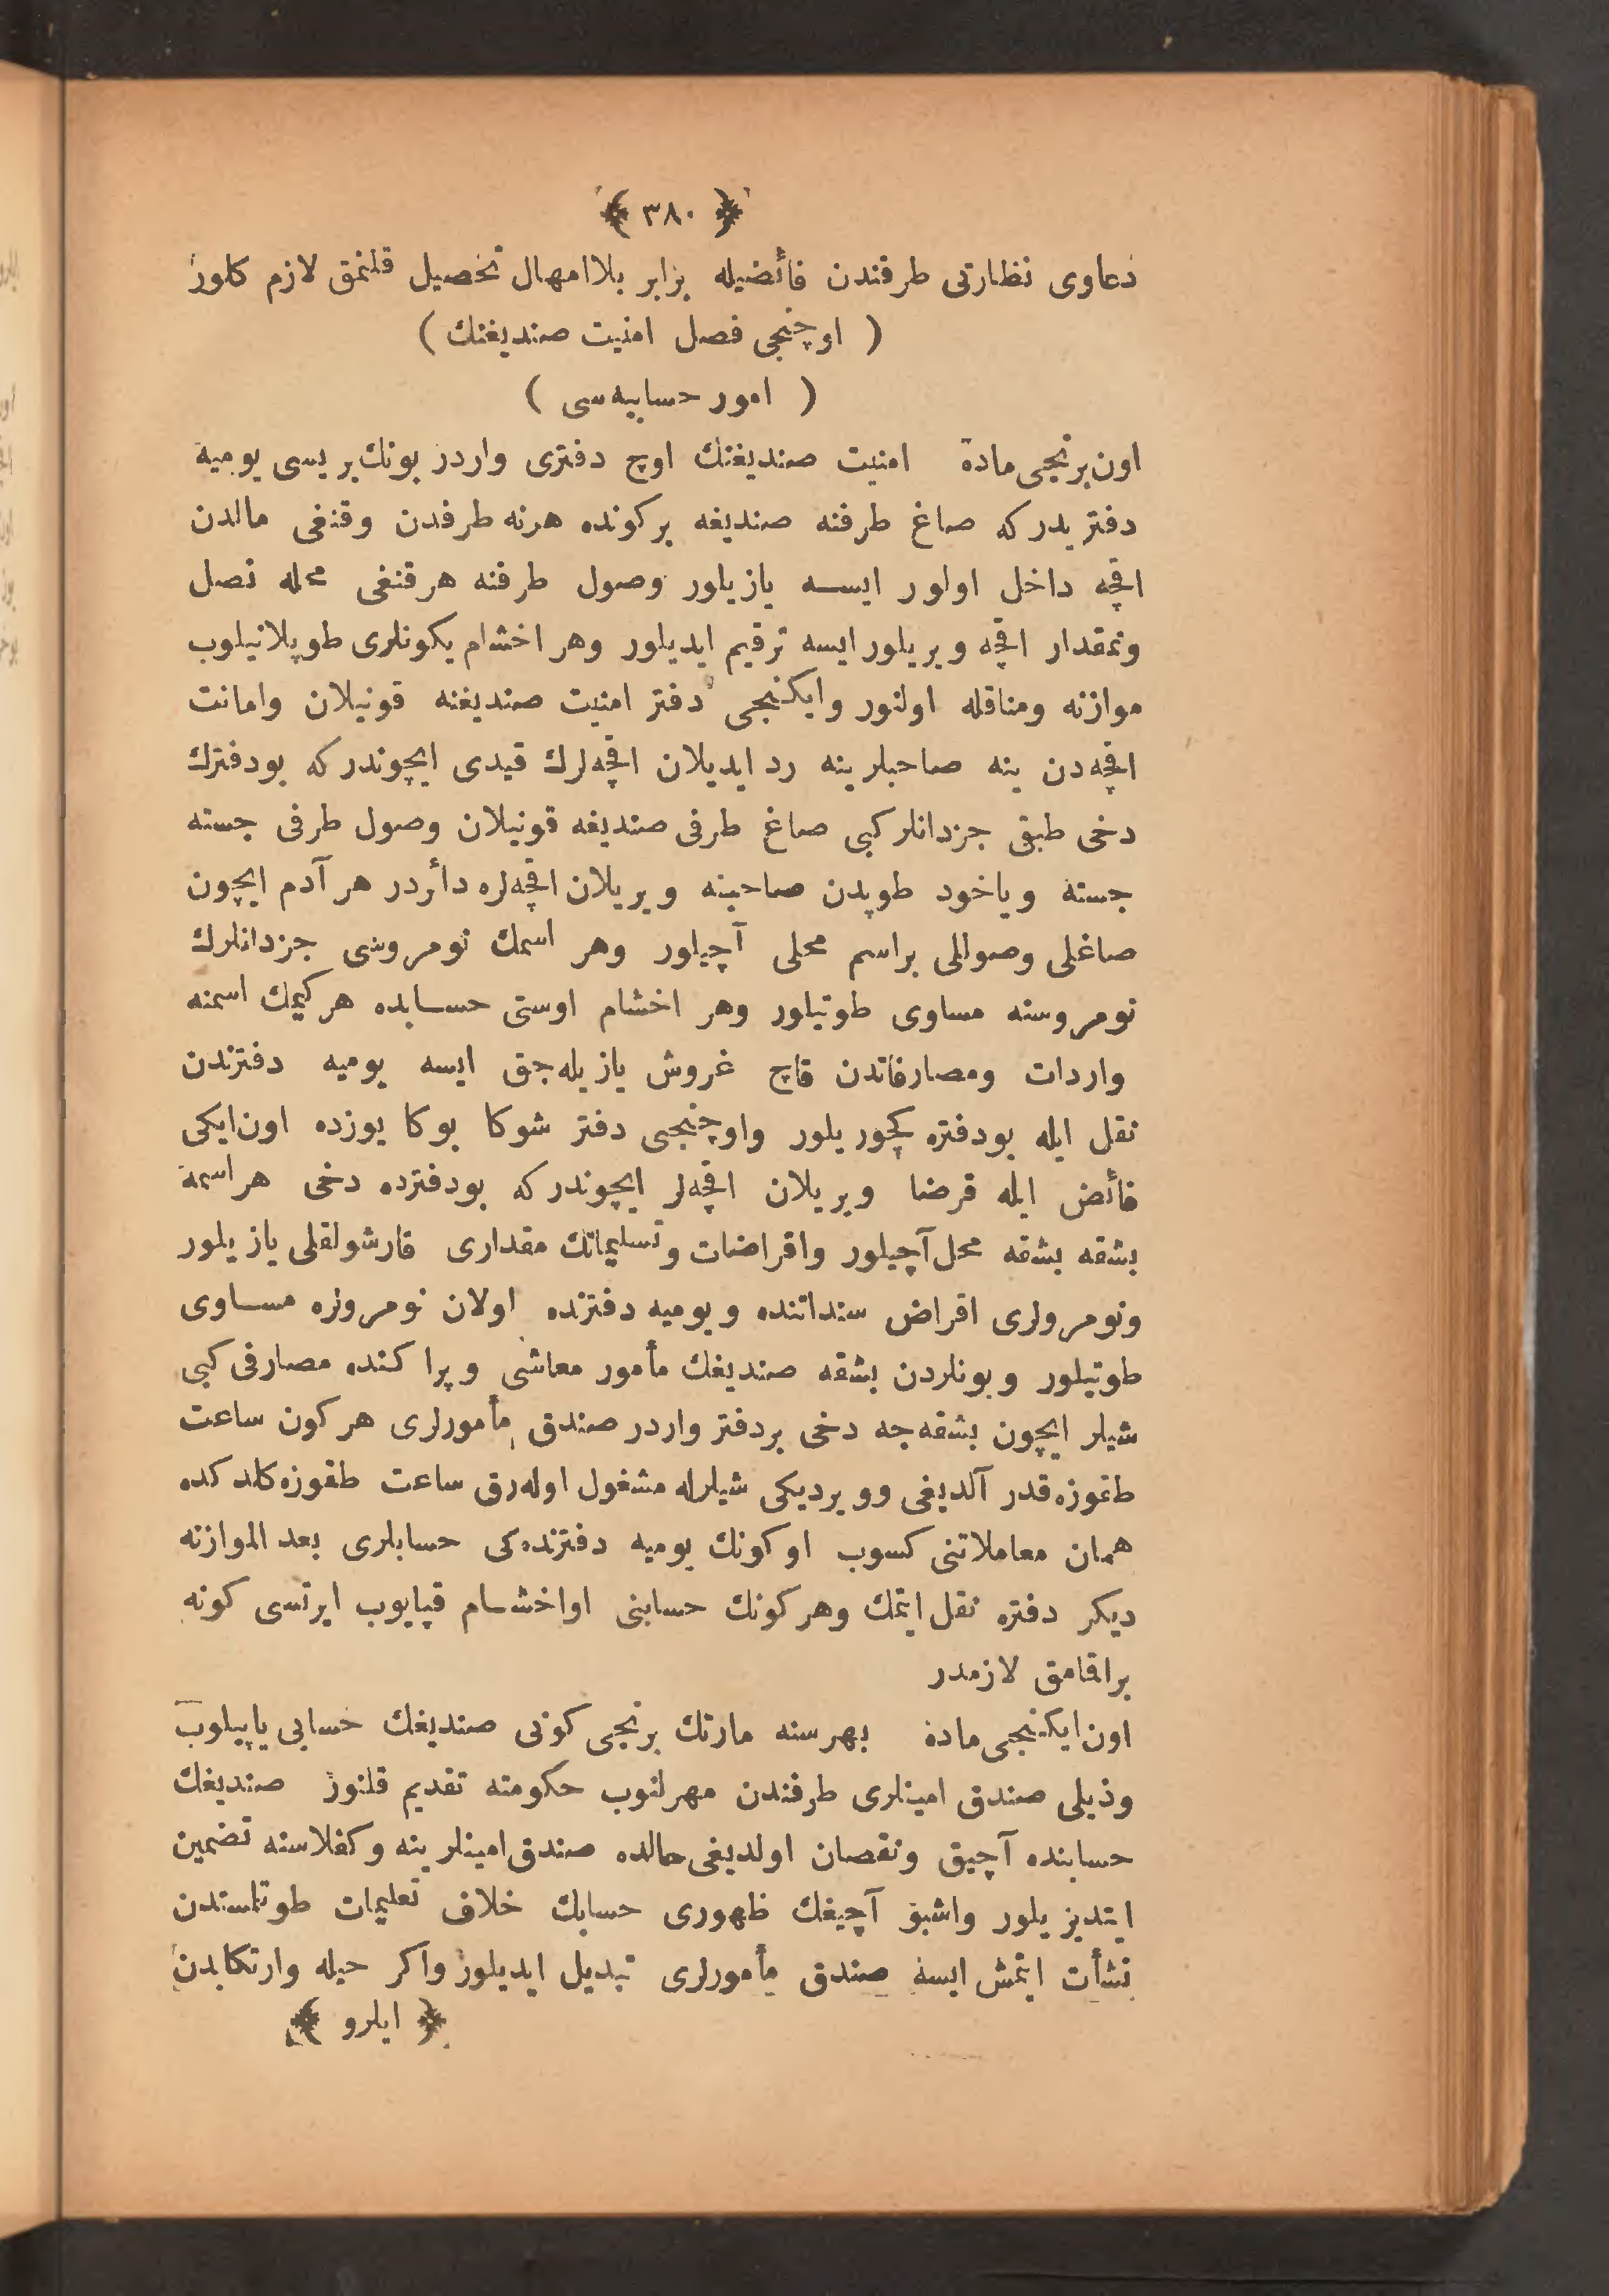 ﴿ ٣٨٠ ﴾
دعاوی نظارتی طرفندن فائضیله برابر بلاامهال تحصیل قلنمق لازم کلور
( اوچنجی فصل امنیت صندیغنك )
( امور حسابیه‌سی )
اون‌برنجی ماده امنیت صندیغنك اوچ دفتری واردر بونك بریسی یومیه
دفتریدر که صاغ طرفنه صندیغه برکونده هرنه طرفدن وقنغی مالدن
اقچه داخل اولور ایسه یازیلور وصول طرفنه هرقنغی محله نصل
ونمقدار اقچه ویریلور ایسه ترقیم ایدیلور وهر اخشام یکونلری طوپلانیلوب
موازنه ومناقله اولنور وایکنجی دفتر امنیت صندیغنه قونیلان وامانت
اقچه‌دن ینه صاحبلرینه رد ایدیلان اقچه‌لرك قیدی ایچوندر که بودفترك
دخی طبق جزدانلر کبی صاغ طرفی صندیغه قونیلان وصول طرفی جسته
جسته ویاخود طوپدن صاحبنه ویریلان اقچه‌لره دائردر هر آدم ایچون
صاغلی وصوللی براسم محلی آچیلور وهر اسمك نومروسی جزدانلرك
نومروسنه مساوی طوتیلور وهر اخشام اوستی حسابده هرکیمك اسمنه
واردات ومصارفاتدن قاچ غروش یازیله‌جق ایسه یومیه دفترندن
نقل ایله بودفتره کچوریلور واوچنجی دفتر شوکا بوکا یوزده اون‌ایکی
فائض ایله قرضا ویریلان اقچه‌لر ایچوندر که بودفترده دخی هراسمه
بشقه بشقه محل آچیلور واقراضات وتسلیماتك مقداری قارشولقلی یازیلور
ونومرولری اقراض سنداتنده ویومیه دفترنده اولان نومرولره مساوی
طوتیلور وبونلردن بشقه صندیغك مأمور معاشی وپراکنده مصارفی کبی
شیلر ایچون بشقه‌جه دخی بردفتر واردر صندق مأمورلری هرکون ساعت
طقوزه‌قدر آلدیغی وویردیکی شیلرله مشغول اوله‌رق ساعت طقوزه‌کلدکده
همان معاملاتنی کسوب اوکونك یومیه دفترنده‌کی حسابلری بعد الموازنه
دیکر دفتره نقل ایتمك وهرکونك حسابنی اواخشام قپایوب ایرتسی کونه
براقامق لازمدر
اون‌ایکنجی ماده بهرسنه مارتك برنجی کونی صندیغك حسابی یاپیلوب
وذیلی صندق امینلری طرفندن مهرلنوب حکومته تقدیم قلنور صندیغك
حسابنده آچیق ونقصان اولدیغی حالده صندق امینلرینه وکفلاسنه تضمین
ایتدیریلور واشبو آچیغك ظهوری حسابك خلاف تعلیمات طوتلمسندن
نشأت ایتمش ایسه صندق مأمورلری تبدیل ایدیلور واکر حیله وارتکابدن
﴿ ایلرو ﴾